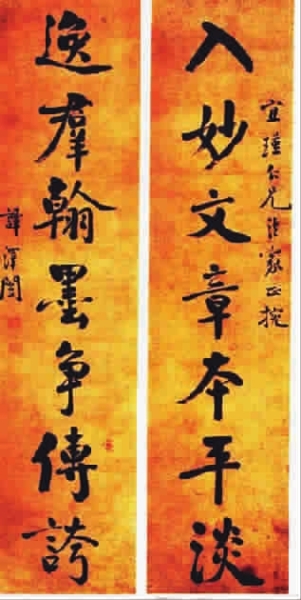 入妙文章本平淡
宜瑾仁兄法家正
逸羣翰墨争傳誇
譚澤闓